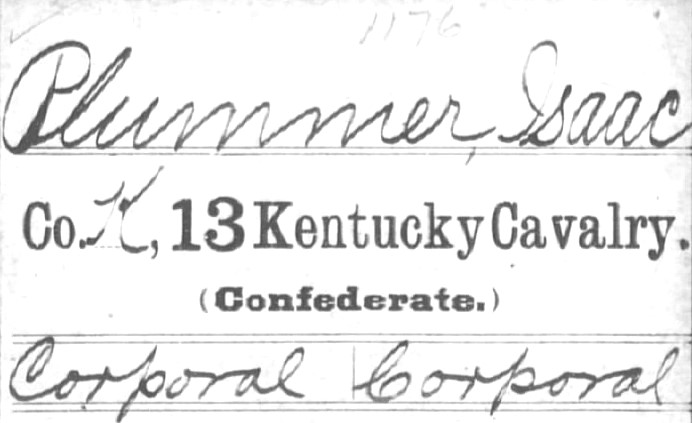 1176
Plummer, Isaac
Co. K, 13 Kentucky Cavalry.
(Confederate.)
Corporal | Corporal